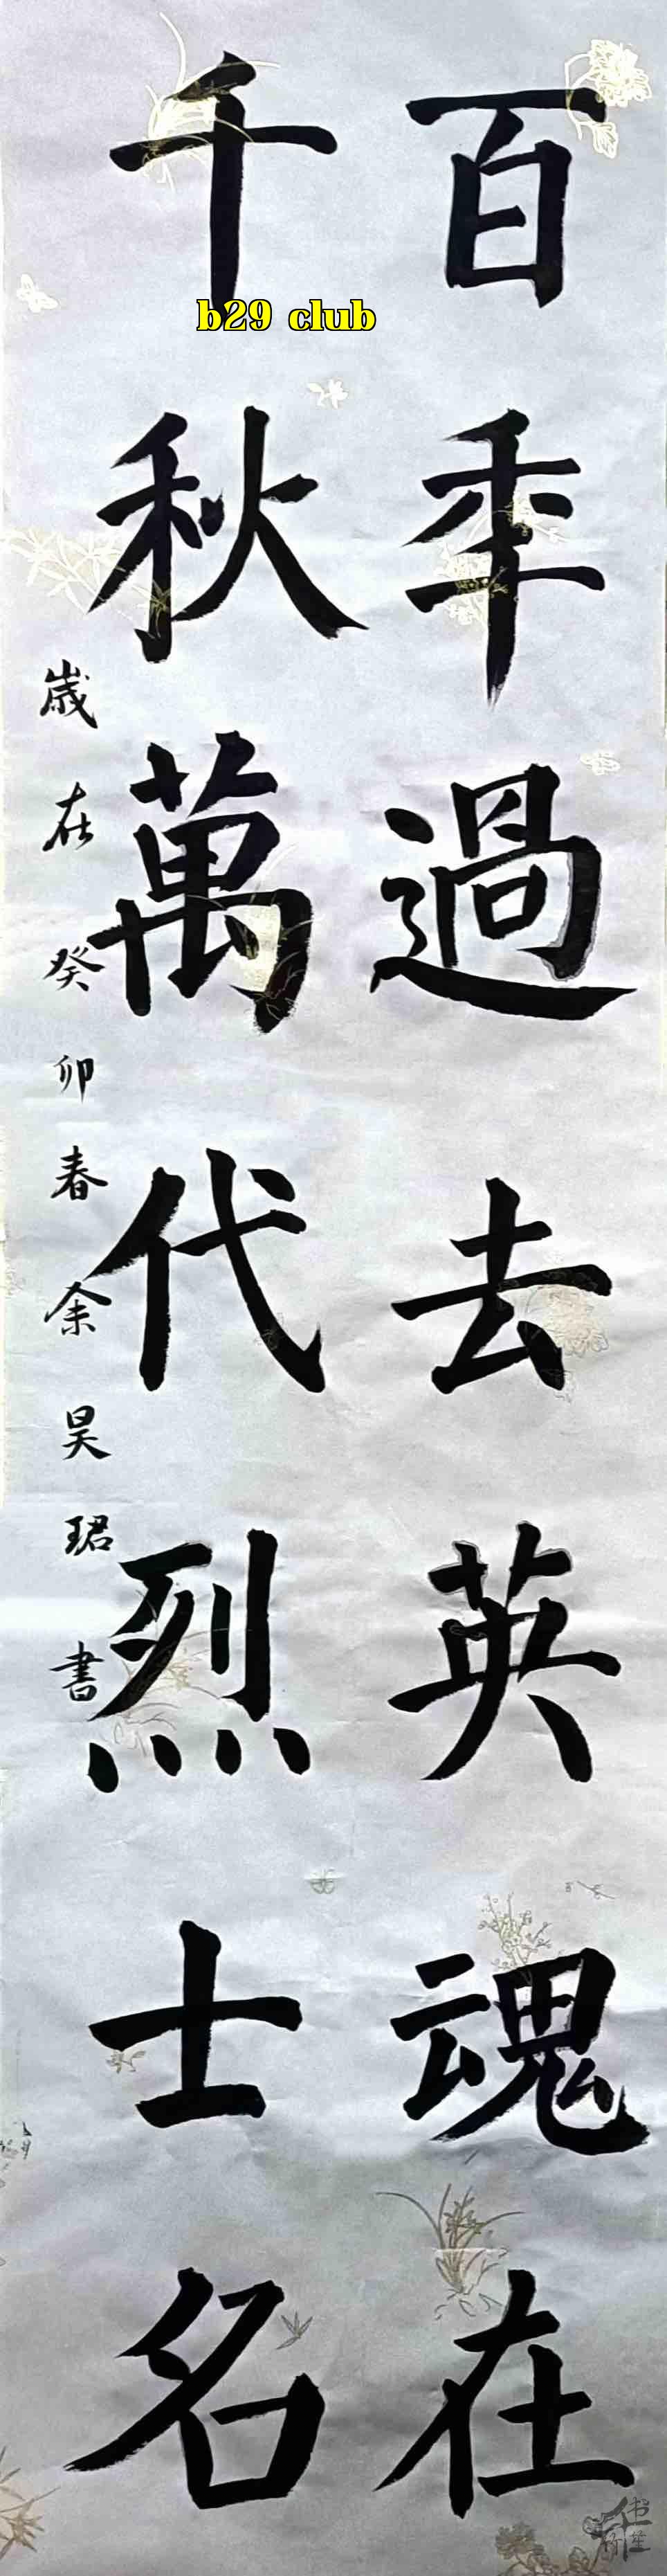 百年過去英魂在
千秋萬代烈士名
歲在癸卯春余昊珺書
b29 club